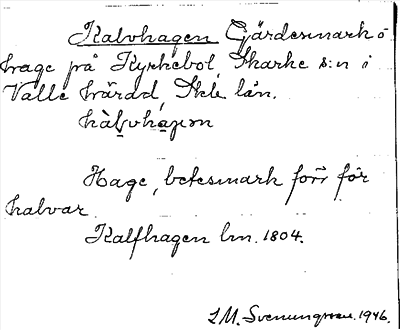 Kalvhagen Gärdesmark o
hage på Kyrkebol, Skarke s:n i
Valle härad, Skb. län.
kàlvha̠gen
Hage, betesmark förr för
kalvar
Kalfhagen lm. 1804.
I.M. Svenungsson. 1946.